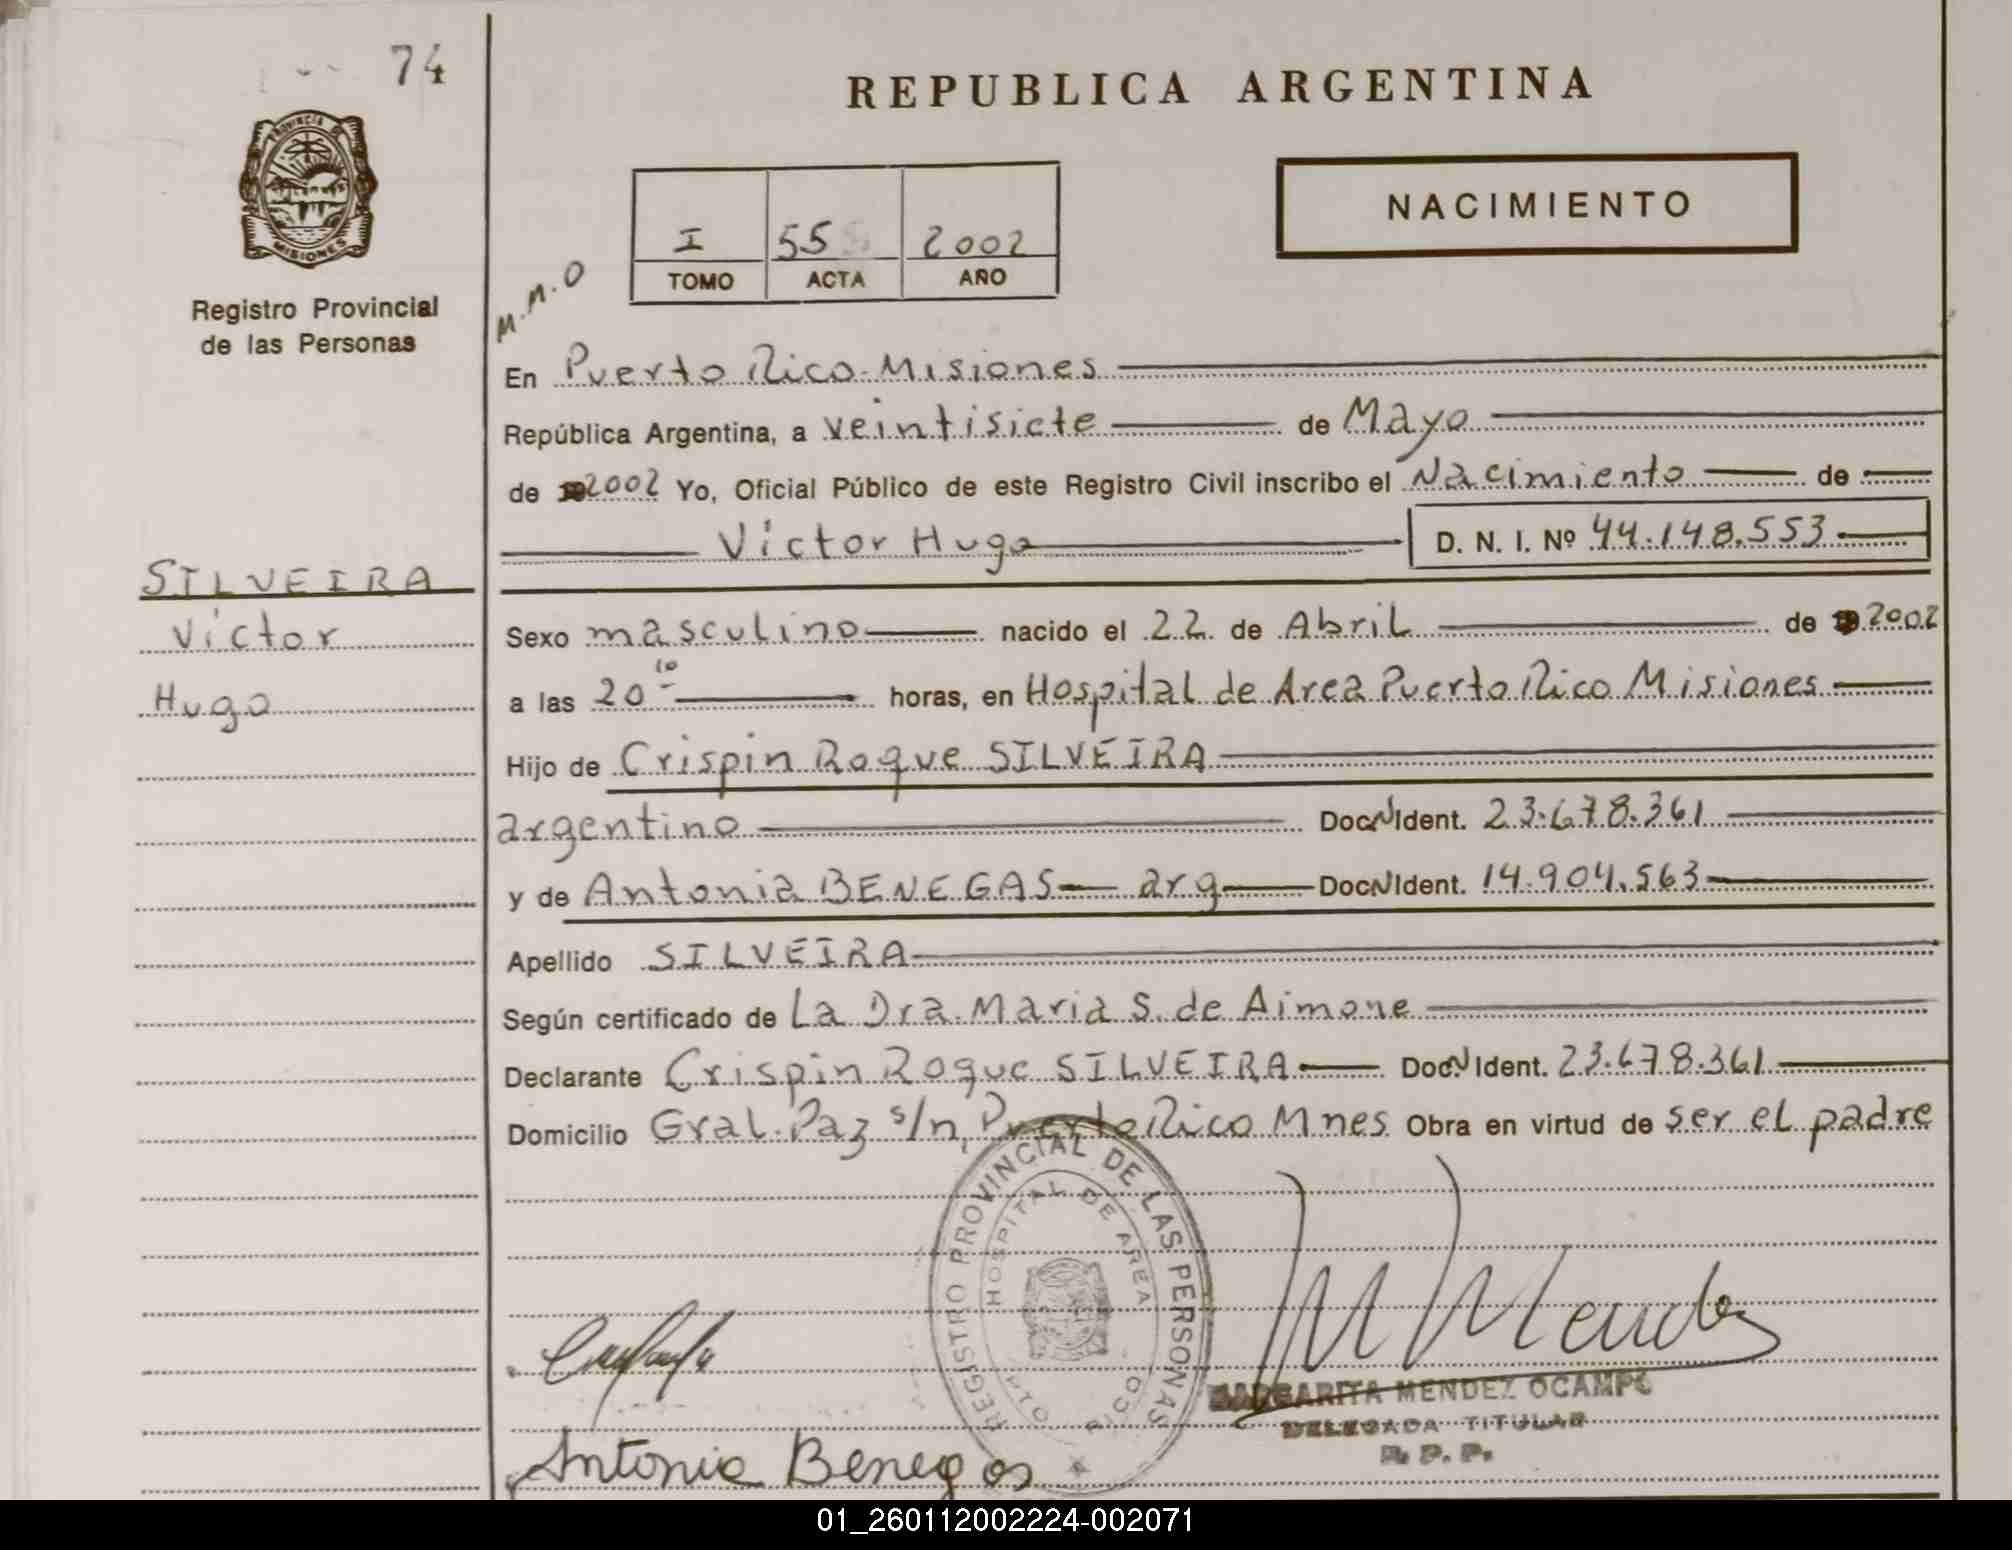 74
REPUBLICA ARGENTINA
PROVINCIA DE
MISIONES
Registro Provincial
de las Personas
NACIMIENTO
I 55 2002
TOMO ACTA AÑO
M.M.O
En Puerto Rico-Misiones
República Argentina, a veintisiete de Mayo
de 2002 Yo, Oficial Público de este Registro Civil inscribo el Nacimiento de
Victor Hugo D. N. I. Nº 44.148.553
SILVEIRA
Victor
Hugo
Sexo masculino nacido el 22 de Abril de 2002
a las 20 10 horas, en Hospital de Area Puerto Rico Misiones
Hijo de Crispin Roque SILVEIRA
argentino Doc. Ident. 23.678.361
y de Antonia BENEGAS arg Doc. Ident. 14.904.563
Apellido SILVEIRA
Según certificado de La Dra. Maria S. de Aimone
Declarante Crispin Roque SILVEIRA Doc. Ident. 23.678.361
Domicilio Gral. Paz s/n, Puerto Rico Mnes Obra en virtud de ser el padre
REGISTRO PROVINCIAL DE LAS PERSONAS
HOSPITAL DE AREA
M Mendez
MARGARITA MENDEZ OCAMPO
DELEGADA TITULAR
R. P. P.
Antonia Benegas
01_260112002224-002071